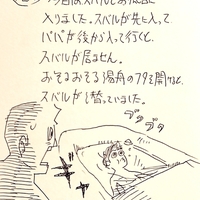 今日はスバルとお風呂に
入りました。スバルが先に入って
パパが後から入って行くと、
スバルが居ません。
おそるおそる湯舟のフタを開けると、
スバルが潜っていました。
ブクブク